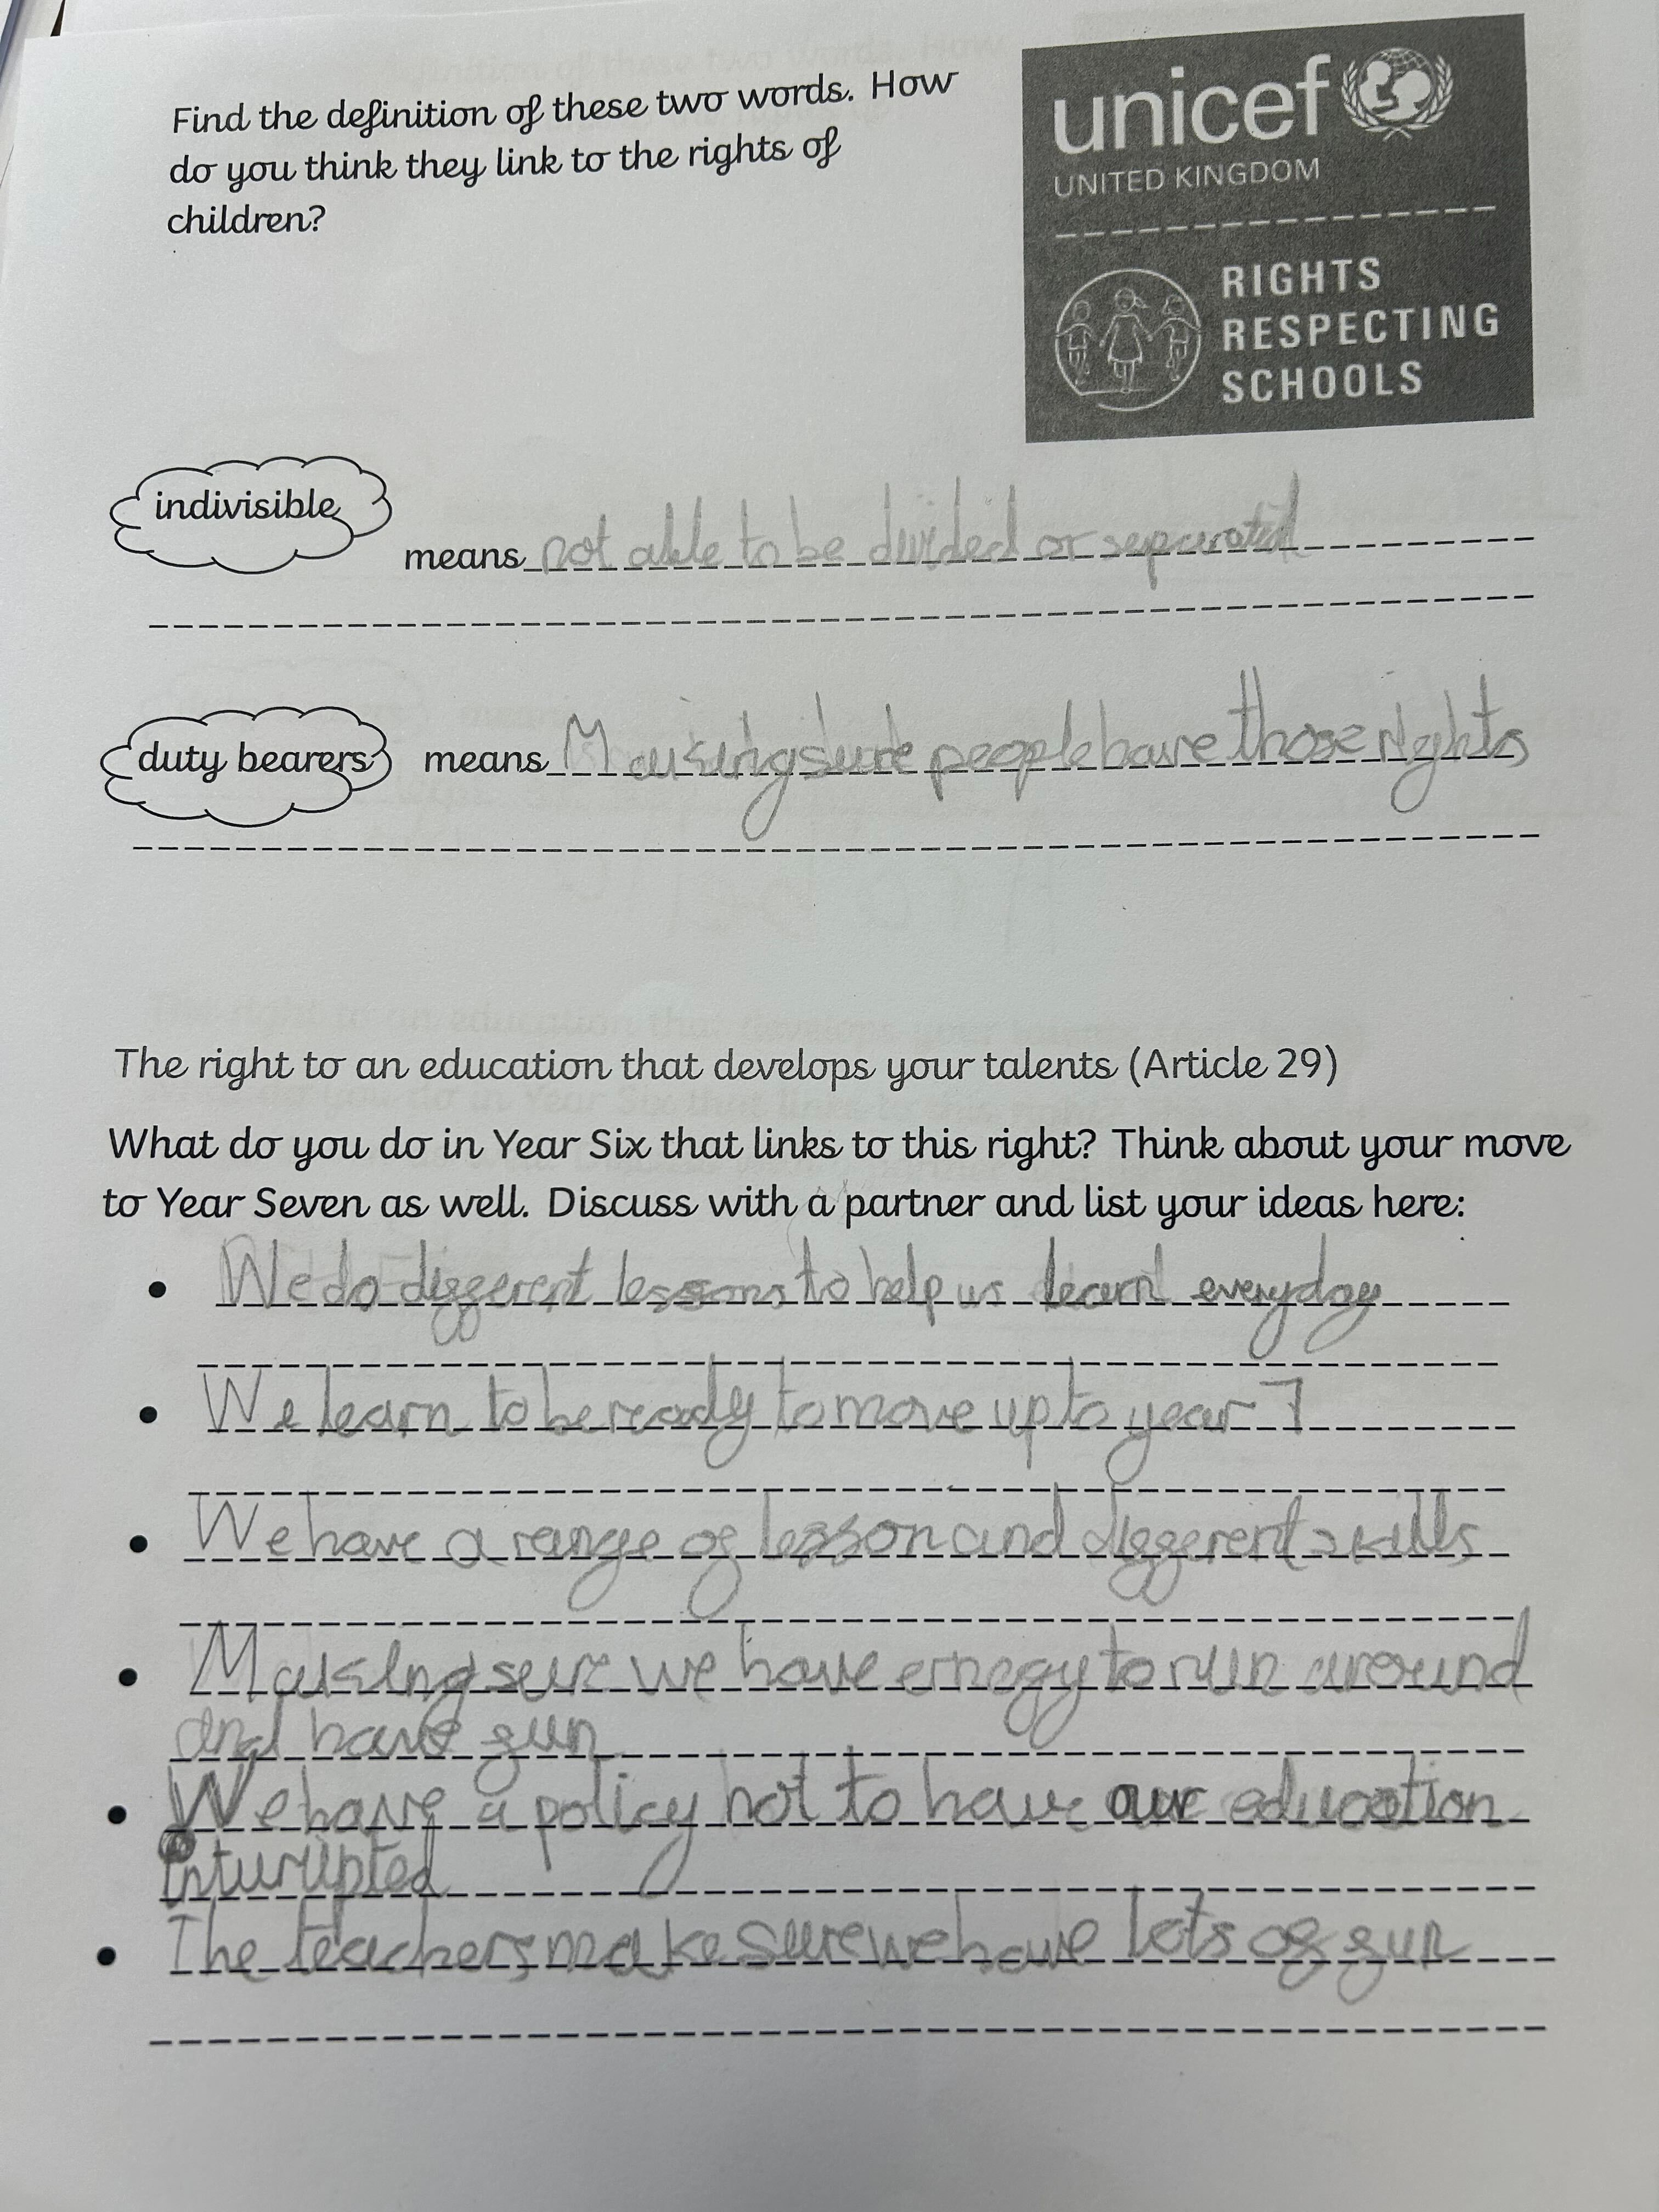 Find the definition of these two words. How
do you think they link to the rights of
children?
unicef
UNITED KINGDOM
RIGHTS
RESPECTING
SCHOOLS
indivisible
means not able to be divided or separated
duty bearers means Making sure people have those rights
The right to an education that develops your talents (Article 29)
What do you do in Year Six that links to this right? Think about your move
to Year Seven as well. Discuss with a partner and list your ideas here:
• We do different lessons to help us learn everyday
• We learn to be ready to move up to year 7
• We have a range of lesson and different skills
• Making sure we have ernegy to run around
and have fun
• We have a policy not to have our education
inturupted
• The teachers make sure we have lots of fun